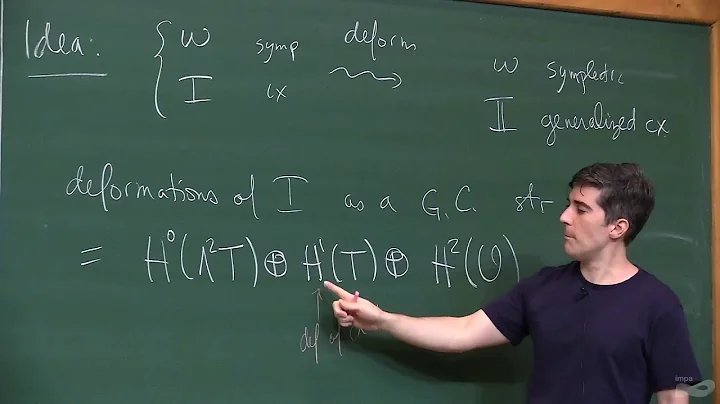 Idea: { ω symp deform ω symplectic
I cx 𝕀 generalized cx
deformations of I as a G.C. str
= H⁰(Λ²T) ⊕ H¹(T) ⊕ H²(O)
↑
def of
impa